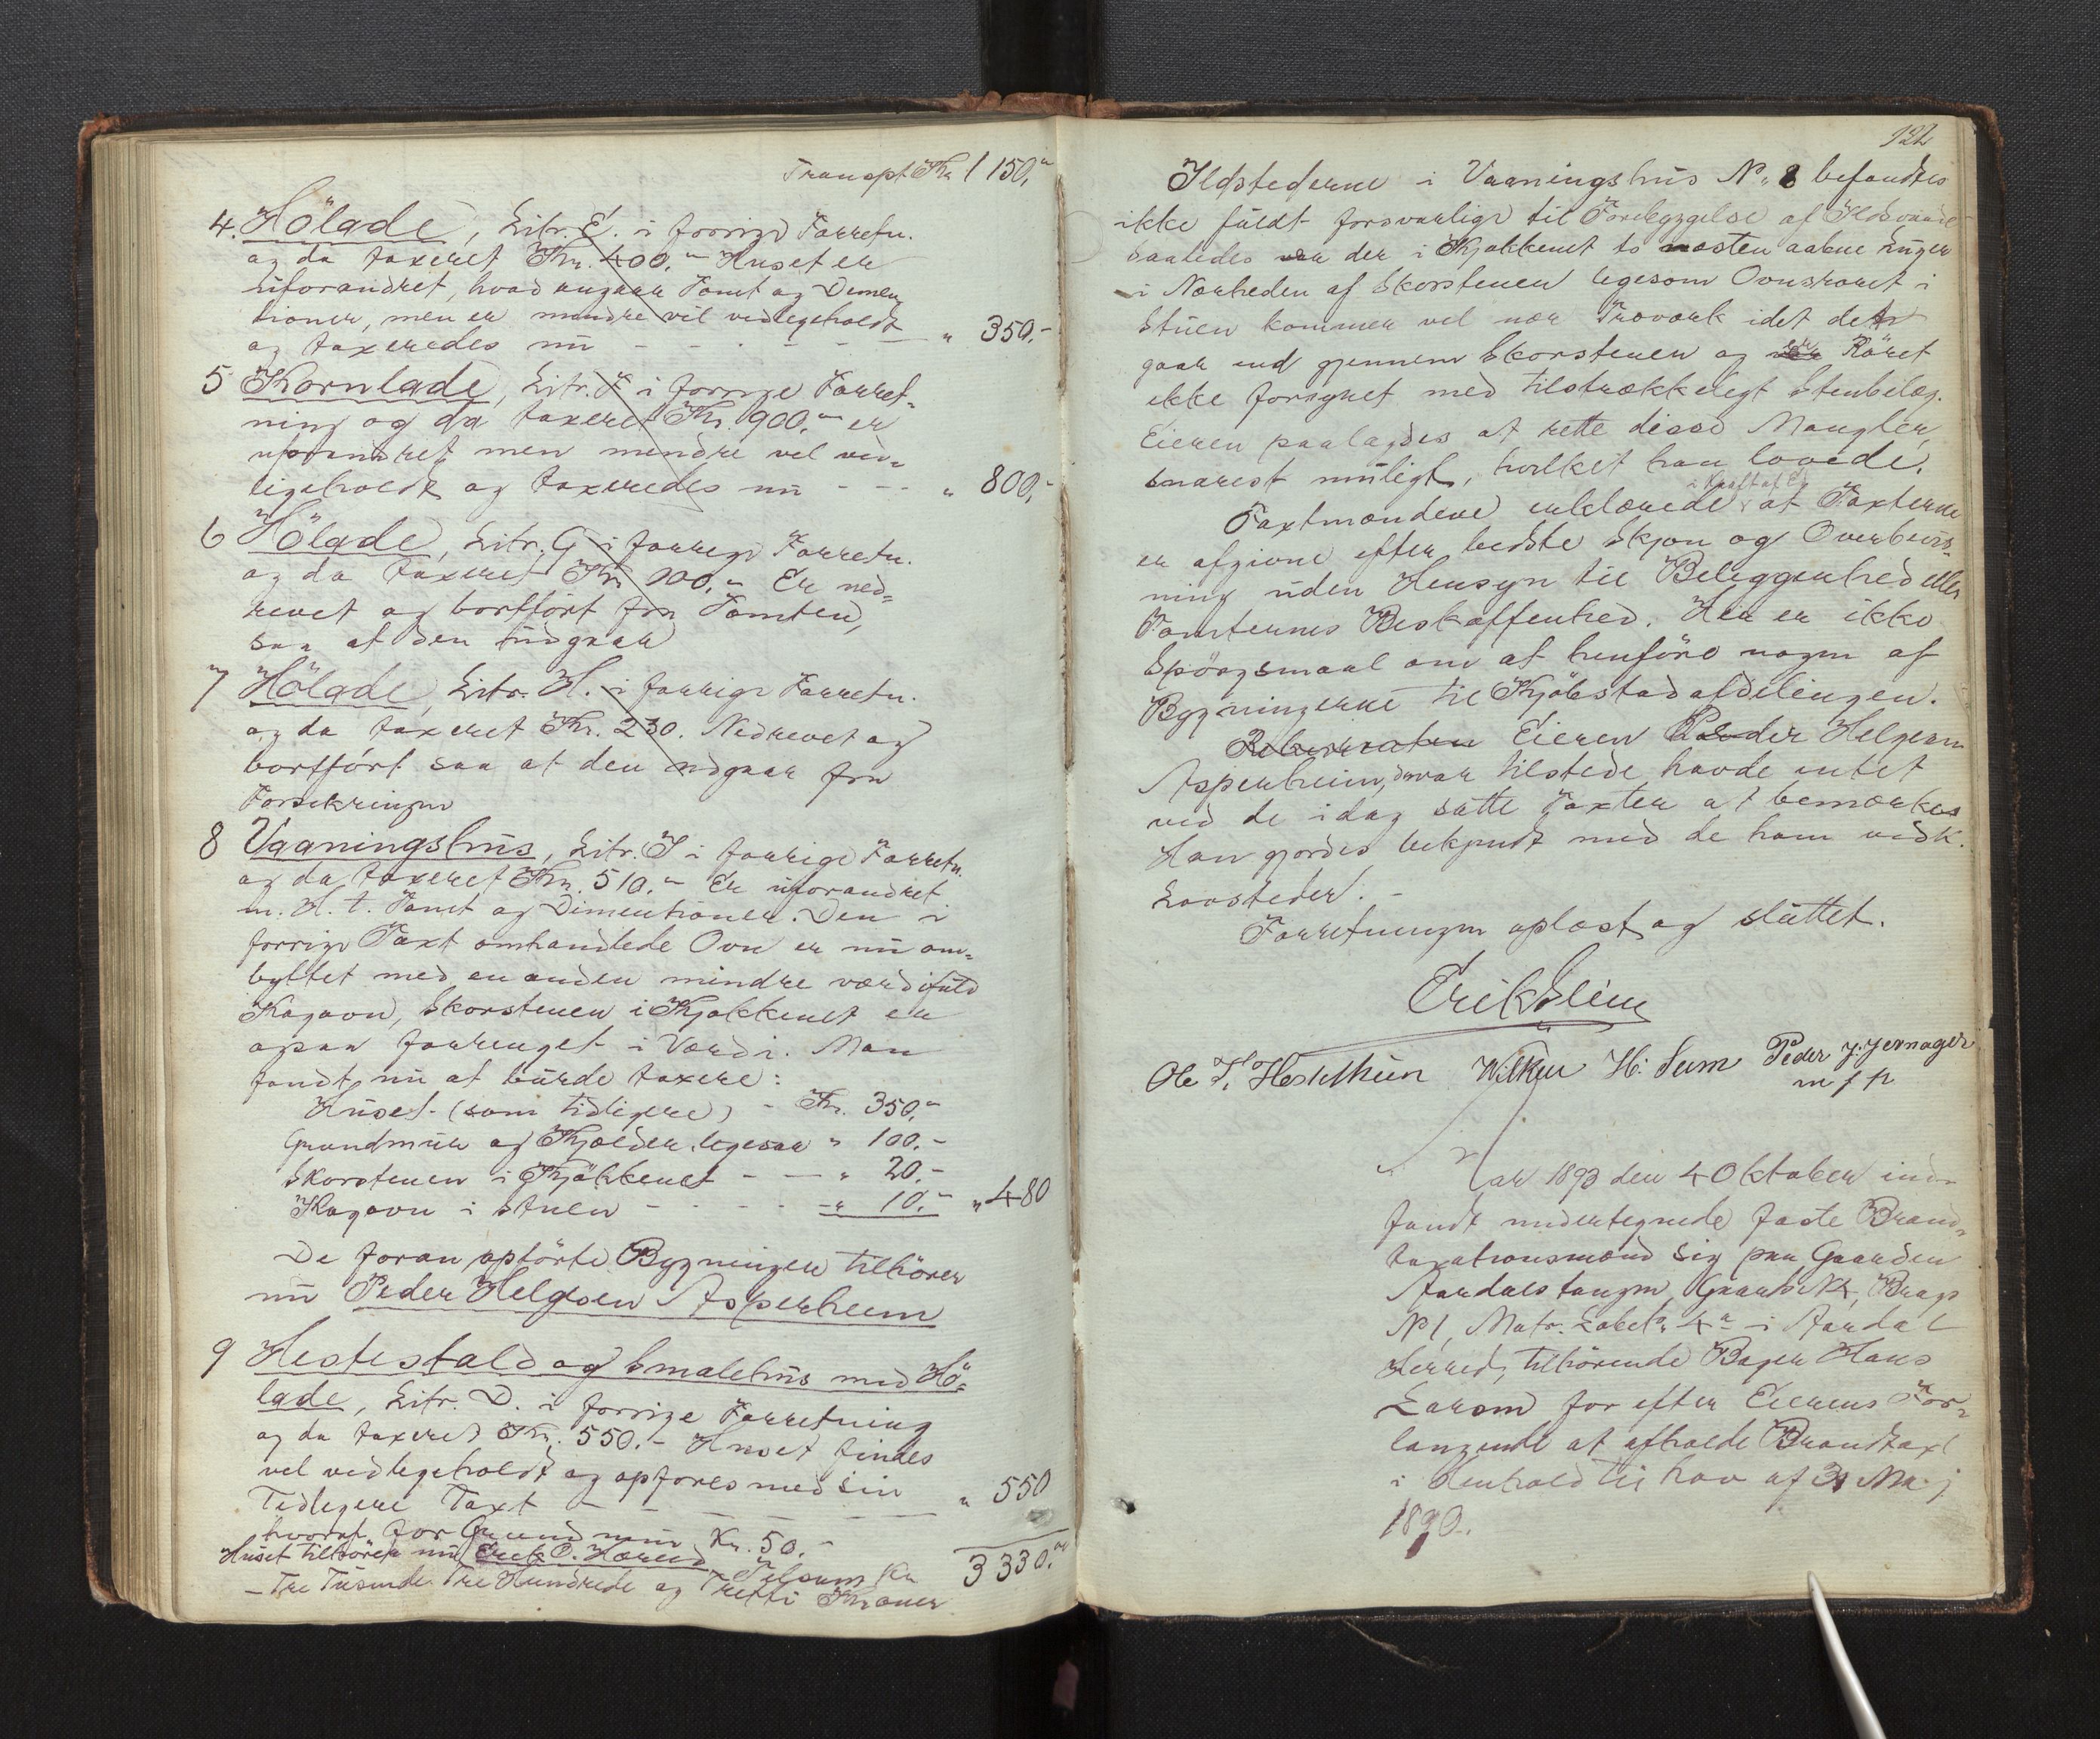 Transpt Kr. 1150,"
4. Hölade, Litr. E. i forrige Forretn.
og da taxeret Kr. 400." Huset er
uforandret, hvad angaar Tomt og Dimen
tioner, men er mindre vel vedligeholdt
og taxeredes nu - - - - - " 350.-
5 Kornlade, Litr. F i forrige Forret=
ning og da taxeret Kr. 900." er
uforandret men mindre vel ved=
ligeholdt og taxeredes nu - - - " 800,-
6 Hölade, Litr. G i forrige Forretn.
og da taxeret Kr. 100." Er ned=
revet og bortfört fra Tomten,
saa at den udgaar
7 Hölade, Litr. H. i forrige Forretn.
og da taxeret Kr. 230. Nedrevet og
bortfört saa at den udgaar fra
Forsikringen
8 Vaaningshus, Litr. I i forrige Forretn.
og da taxeret Kr. 510." Er uforandret
m. H. t. Tomt og Dimentioner. Den i
forrige Taxt omhandlede Ovn er nu om=
byttet med en anden mindre værdifuld
Kogovn, Skorstenen i Kjøkkenet er
ogsaa forringet i Værdi. Man
fandt nu at burde taxere:
Huset (som tidligere) - Kr. 350,"
Grundmur og Kjælder ligesaa " 100.-
Skorstenen i Kjökkenet - - " 20.-
Kogovn i Stuen - - - - " 10." " 480
De foran opførte Bygninger tilhører
nu Peder Helgesen Asperheim
9 Hestestald og Smalehus med Hö=
lade, Litr. D. i forrige Forretning
og da taxeret Kr. 550.- Huset findes
vel vedligeholdt og opføres med sin
Tidligere Taxt - - - - " 550
hvoraf for Grundmur Kr. 50.-
Huset tilhörer nu Tilsam Kr 3330."
- Tre Tusinde Tre Hundrede og Tretti Kroner
122
Ildstederne i Vaaningshus No 8 befandtes
ikke fuldt forsvarlige til Forebyggelse af Ildsvaade
saaledes var der i Kjøkkenet to næsten aabne Luger
i Nærheden af Skorstenen ligesom Ovnsrøret i
Stuen kommer vel nær Træværk idet det
gaar ud gjennem Skorstenen og er Röret
ikke forsynet med tilstrækkeligt Stenbelæg.
Eieren paalagdes at rette disse Mangler
snarest muligt, hvilket han lovede.
i Kraft af Ed
Taxtmændene erklærede at Taxterne
er afgivne efter bedste Skjøn og Overbevis=
ning uden Hensyn til Beliggenhed eller
Tomternes Beskaffenhed. Her er ikke
Spörgsmaal om at henföre nogen af
Bygningerne til Kjöbstadafdelingen.
Rekvirenten Eieren Peder Helgesen
Asperheim, der var tilstede havde intet
ved de idag satte Taxter at bemærke
Han gjordes bekjendt med de ham vedk.
Lovsteder. -
Forretningen oplæst og sluttet.
Erik Slim
Ole T. Hestethun Wilken H. Sum Peder J. Jernager
m f p
Aar 1893 den 4 Oktober ind=
fandt undertegnede faste Brand=
taxationsmænd sig paa Gaarden
Aardalstangen, Gaards N 4, Brugs
N 1, Matr. Løbe 4 i Aardal
Herred, tilhörende Bager Hans
Larsen for efter Eierens For=
langende at afholde Brandtaxt
i Henhold til Lov af 31 Maj
1890.